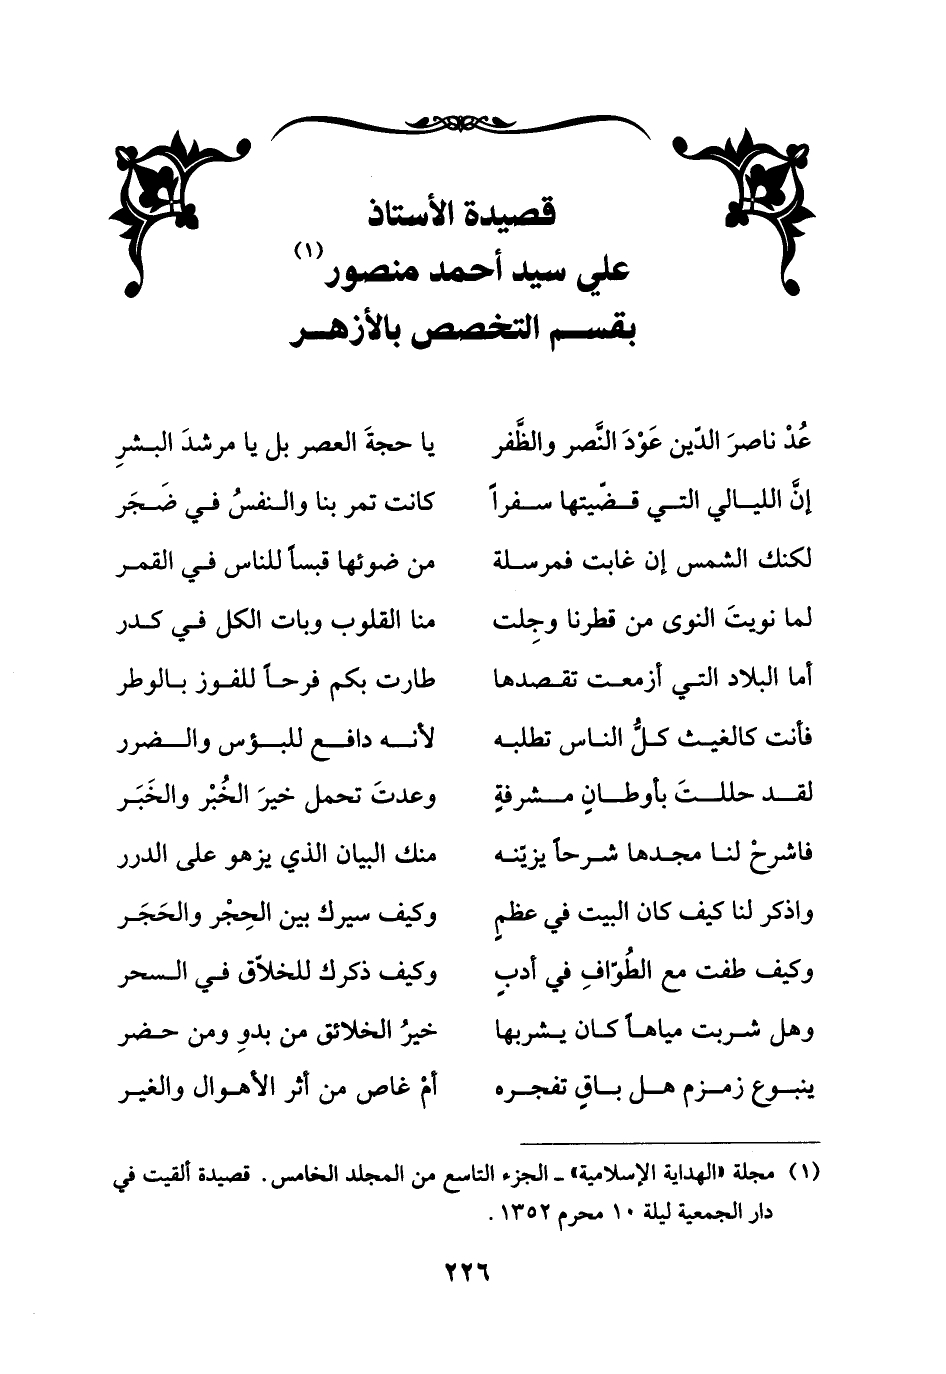 قصيدة الأستاذ
علي سيد أحمد منصور (١)
بقسم التخصص بالأزهر
عُدْ ناصرَ الدّين عَوْدَ النَّصر والظَّفر يا حجةَ العصر بل يا مرشدَ البشرِ
إنَّ الليالي التي قضّيتها سفراً كانت تمر بنا والنفسُ في ضَجَر
لكنك الشمس إن غابت فمرسلة من ضوئها قبساً للناس في القمر
لما نويتَ النوى من قطرنا وجِلت منا القلوب وبات الكل في كدر
أما البلاد التي أزمعت تقصدها طارت بكم فرحاً للفوز بالوطر
فأنت كالغيث كلُّ الناس تطلبه لأنه دافع للبؤس والضرر
لقد حللتَ بأوطانٍ مشرفةٍ وعدتَ تحمل خيرَ الخُبْر والخَبَر
فاشرحْ لنا مجدها شرحاً يزيّنه منك البيان الذي يزهو على الدرر
واذكر لنا كيف كان البيت في عظمٍ وكيف سيرك بين الحِجْر والحَجَر
وكيف طفت مع الطُوّافِ في أدبٍ وكيف ذكرك للخلاّق في السحر
وهل شربت مياهاً كان يشربها خيرُ الخلائق من بدوِ ومن حضر
ينبوع زمزم هل باقٍ تفجره أمْ غاص من أثر الأهوال والغير
(١) مجلة «الهداية الإسلامية» ـ الجزء التاسع من المجلد الخامس. قصيدة ألقيت في
دار الجمعية ليلة ١٠ محرم ١٣٥٢.
٢٢٦